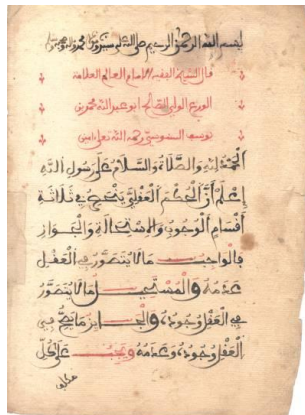 بسم الله الرحمن الرحيم صلى الله على سيدنا محمد وآله وصحبه
قال الشيخ الفقيه الإمام العالم العلامة
الورع الولي الصالح أبو عبد الله محمد بن
يوسف السنوسي رحمه الله تعالى آمين
الحمد لله والصلاة والسلام على رسول الله
إعلم أن الحكم العقلي ينحصر في ثلاثة
أقسام الوجوب والاستحالة والجواز
فالواجب مالا يتصور في العقل
عدمه والمستحيل مالا يتصور
في العقل وجوده والجائز ما يصح في
العقل وجوده وعدمه ويجب على كل
مكلف